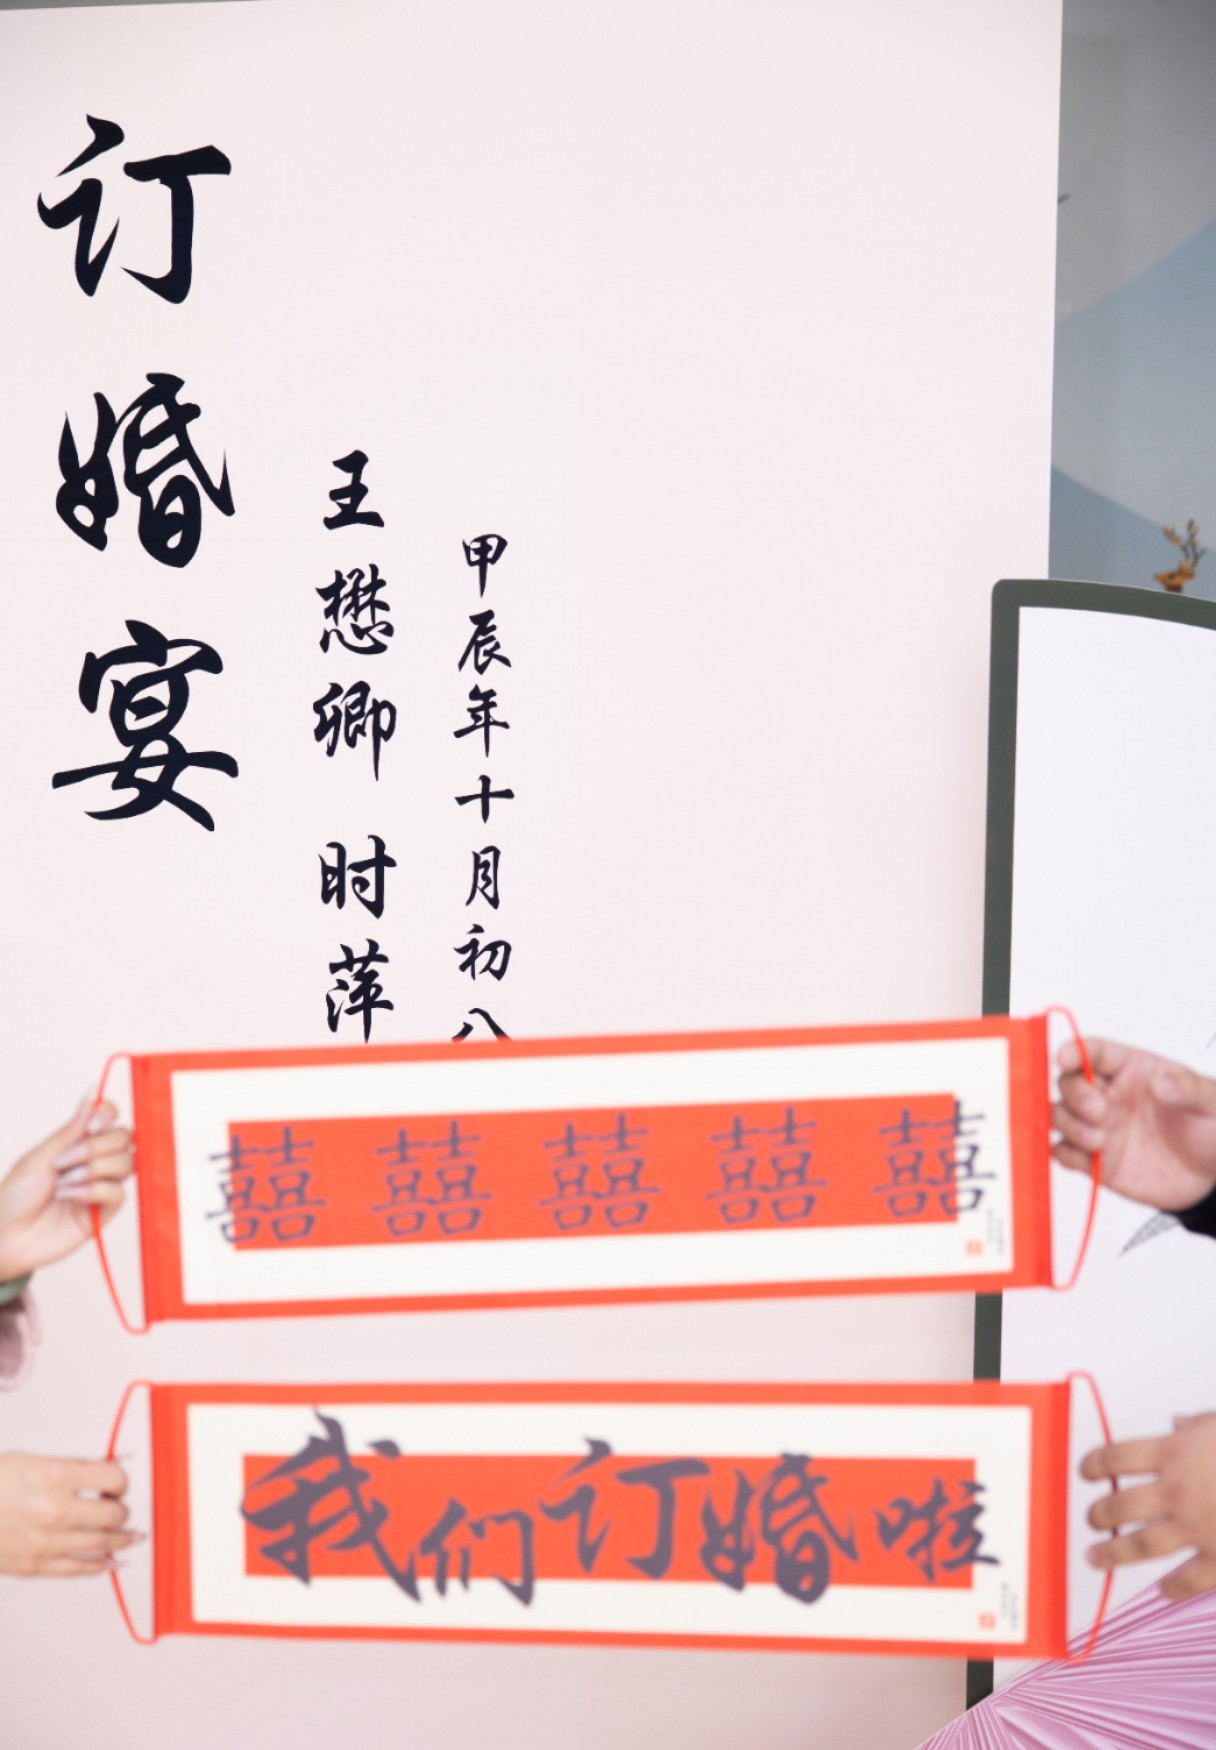 订婚宴
王懋卿 时萍
甲辰年十月初八
囍囍囍囍囍
我们订婚啦